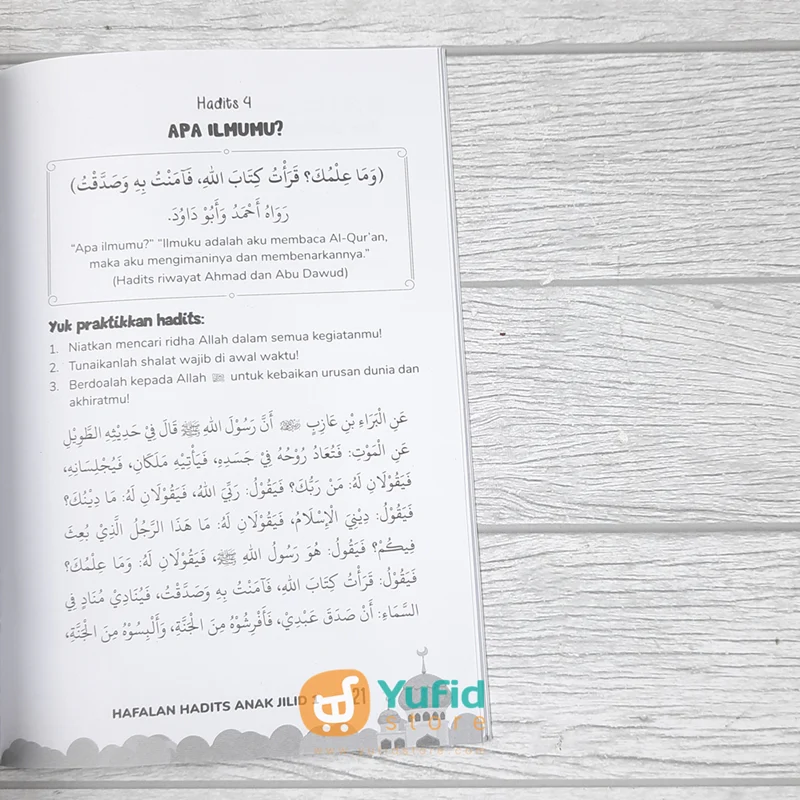 Hadits 4
APA ILMUMU?
(وَمَا عِلْمُكَ؟ قَرَأْتُ كِتَابَ اللهِ، فَآمَنْتُ بِهِ وَصَدَّقْتُ)
رَوَاهُ أَحْمَدُ وَأَبُوْ دَاوُدَ.
“Apa ilmumu?” “Ilmuku adalah aku membaca Al-Qur’an,
maka aku mengimaninya dan membenarkannya.”
(Hadits riwayat Ahmad dan Abu Dawud)
Yuk praktikkan hadits:
1. Niatkan mencari ridha Allah dalam semua kegiatanmu!
2. Tunaikanlah shalat wajib di awal waktu!
3. Berdoalah kepada Allah untuk kebaikan urusan dunia dan
akhiratmu!
عَنِ الْبَرَاءِ بْنِ عَازِبٍ أَنَّ رَسُوْلَ اللهِ ﷺ قَالَ فِيْ حَدِيْثِهِ الطَّوِيْلِ
عَنِ الْمَوْتِ: فَتُعَادُ رُوْحُهُ فِيْ جَسَدِهِ، فَيَأْتِيْهِ مَلَكَانِ، فَيُجْلِسَانِهِ،
فَيَقُوْلَانِ لَهُ: مَنْ رَبُّكَ؟ فَيَقُوْلُ: رَبِّيَ اللهُ، فَيَقُوْلَانِ لَهُ: مَا دِيْنُكَ؟
فَيَقُوْلُ: دِيْنِيَ الْإِسْلَامُ، فَيَقُوْلَانِ لَهُ: مَا هَذَا الرَّجُلُ الَّذِيْ بُعِثَ
فِيكُمْ؟ فَيَقُولُ: هُوَ رَسُولُ اللهِ ﷺ، فَيَقُوْلَانِ لَهُ: وَمَا عِلْمُكَ؟
فَيَقُوْلُ: قَرَأْتُ كِتَابَ اللهِ، فَآمَنْتُ بِهِ وَصَدَّقْتُ، فَيُنَادِيْ مُنَادٍ فِي
السَّمَاءِ: أَنْ صَدَقَ عَبْدِيْ، فَأَفْرِشُوْهُ مِنَ الْجَنَّةِ، وَأَلْبِسُوْهُ مِنَ الْجَنَّةِ،
HAFALAN HADITS ANAK JILID 21
Yufid
store